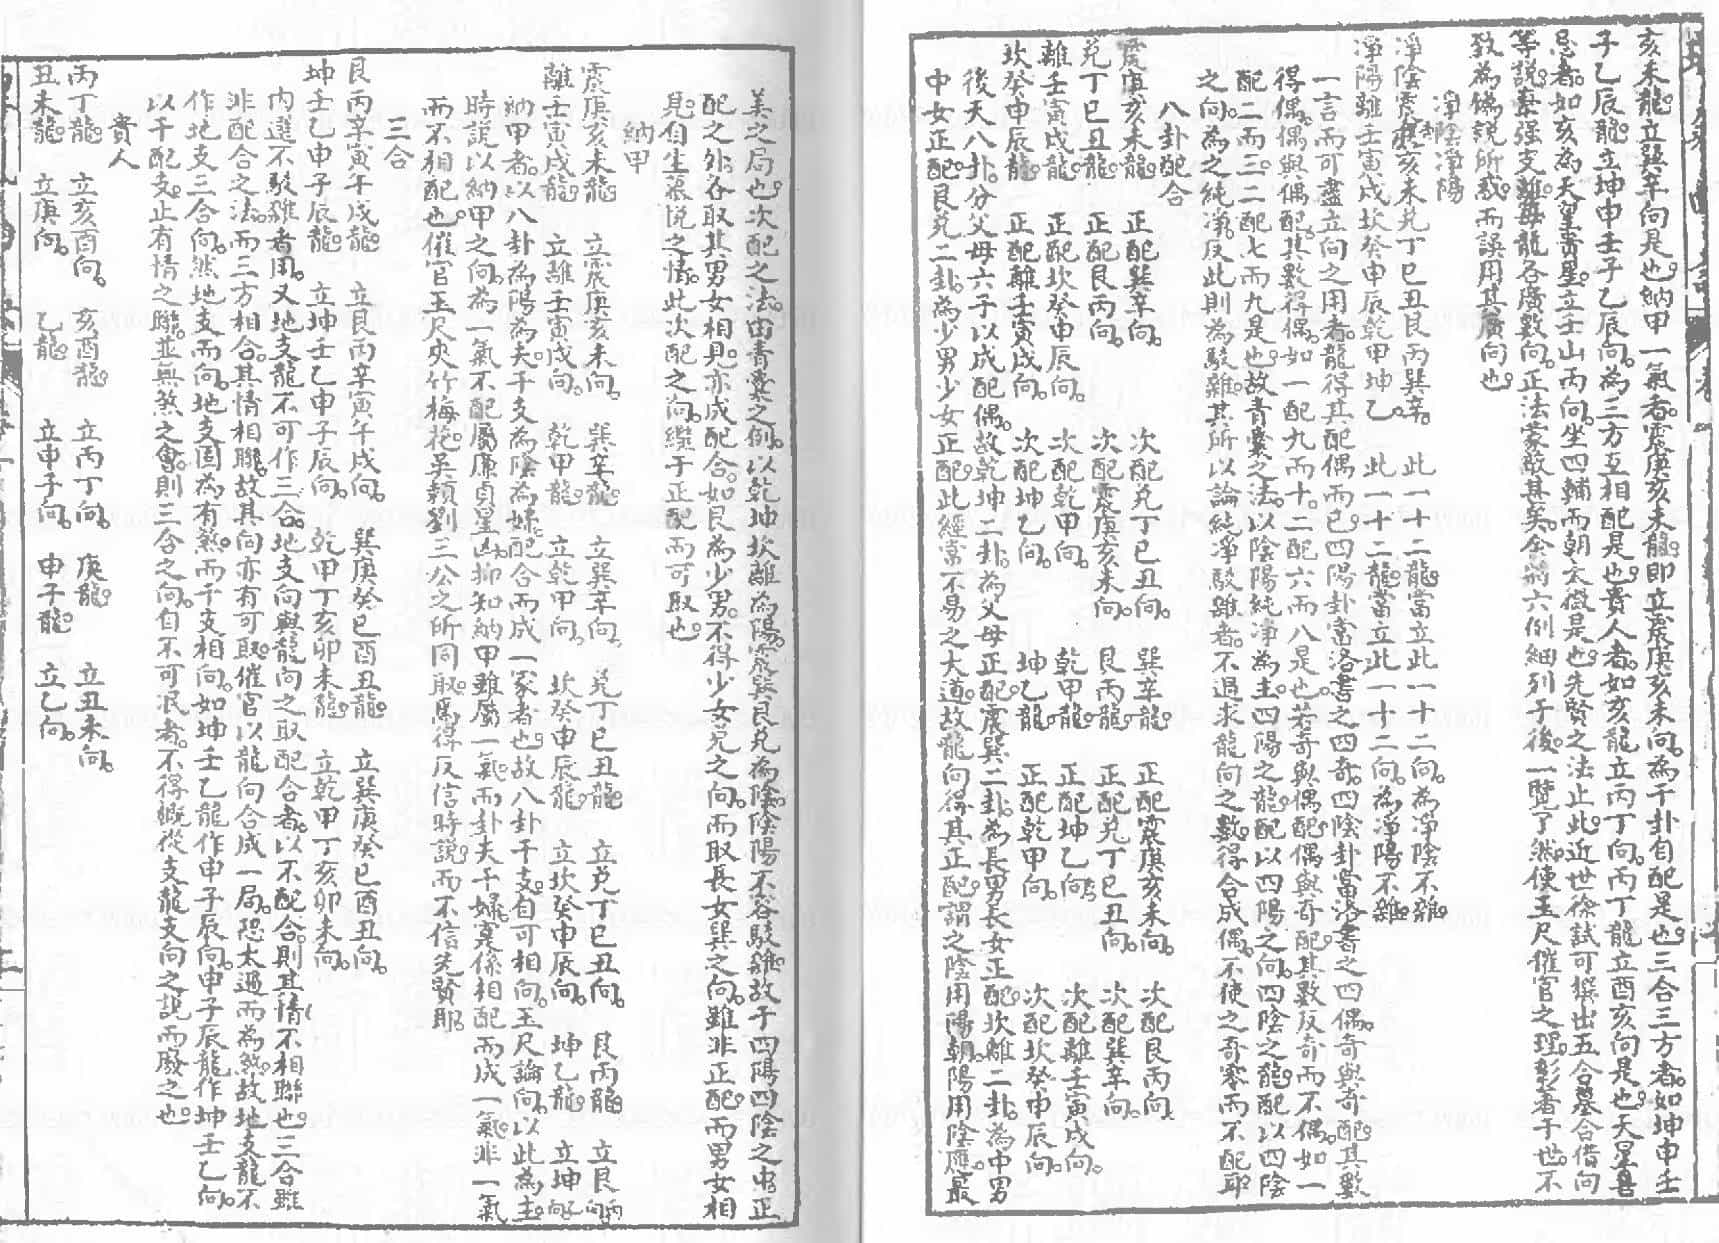 亥未龍立巽辛向是也納甲一氣者震庚亥未龍即立震庚亥未向為干卦自配是也三合三方者如坤申壬
子乙辰龍立坤申壬子乙辰向為三方互相配是也貴人者如亥龍立丙丁向丙丁龍立酉亥向是也天星喜
忌者如亥為天皇貴星立壬山丙向坐四輔而朝太微是也先賢之法止此近世徐試可撰出五合墓合借向
等說牽强支離每龍各廣數向正法蒙蔽其矣今將六例細列于後一覽了然使玉尺催官之理彰著于世不
致為偽說所惑而誤用其廣向也
淨陰淨陽
淨陰震庚亥未兌丁巳丑艮丙巽辛 此一十二龍當立此一十二向為淨陰不雜
淨陽離壬寅戌坎癸申辰乾甲坤乙 此一十二龍當立此一十二向為淨陽不雜
一言而可盡立向之用者龍得其配偶而已四陽卦當洛書之四奇四陰卦當洛書之四偶奇與奇配其數
得偶偶與偶配其數得偶如一配九而十二配六而八是也若奇與偶配偶與奇配其數反奇而不偶如一
配二而三二配七而九是也故青囊之法以陰陽純淨為主四陽之龍配以四陽之向四陰之龍配以四陰
之向為之純淨反此則為駁雜其所以論純淨駁雜者不過求龍向之數得合成偶不使之奇零而不配耶
八卦配合
震庚亥未龍 正配巽辛向 次配兌丁巳丑向 巽辛龍 正配震庚亥未向 次配艮丙向
兌丁巳丑龍 正配艮丙向 次配震庚亥未向 艮丙龍 正配兌丁巳丑向 次配巽辛向
離壬寅戌龍 正配坎癸申辰向 次配乾甲向 乾甲龍 正配坤乙向 次配離壬寅戌向
坎癸申辰龍 正配離壬寅戌向 次配坤乙向 坤乙龍 正配乾甲向 次配坎癸申辰向
後天八卦分父母六子以成配偶故乾坤二卦為父母正配震巽二卦為長男長女正配坎離二卦為中男
中女正配艮兌二卦為少男少女正配此經常不易之大道故龍向得其正配謂之陰用陽朝陽用陰應最
美之局也次配之法由青囊之例以乾坤坎離為陽震巽艮兌為陰陰陽不容駁雜故于四陽四陰之中正
配之外各取其男女相見亦成配合如艮為少男不得少女兌之向而取長女巽之向雖非正配而男女相
見自生懷悅之情此次配之向繼于正配而可取也
納甲
震庚亥未龍 立震庚亥未向 巽辛龍 立巽辛向 兌丁巳丑龍 立兌丁巳丑向 艮丙龍 立艮丙向
離壬寅戌龍 立離壬寅戌向 乾甲龍 立乾甲向 坎癸申辰龍 立坎癸申辰向 坤乙龍 立坤乙向
納甲者以八卦為陽為夫干支為陰為婦配合而成一家者也故八卦干支自可相向玉尺論向以此為主
時說以納甲之向為一氣不配屬廉貞星凶抑知納甲雖屬一氣而卦夫干婦寔係相配而成一氣非一氣
而不相配也催官玉尺夾竹梅花吳賴劉三公之所同取焉得反信時說而不信先賢耶
三合
艮丙辛寅午戌龍 立艮丙辛寅午戌向 巽庚癸巳酉丑龍 立巽庚癸巳酉丑向
坤壬乙申子辰龍 立坤壬乙申子辰向 乾甲丁亥卯未龍 立乾甲丁亥卯未向
內選不駁雜者用又地支龍不可作三合地支向與龍向之取配合者以不配合則其情不相聯也三合雖
非配合之法而三方相合其情相聯故其向亦有可取催官以龍向合成一局恐太過而為煞故地支龍不
作地支三合向然地支而向地支固為有煞而干支相向如坤壬乙龍作申子辰向申子辰龍作坤壬乙向
以干配支止有情之聯並無煞之會則三合之向自不可泯者不得概從支龍支向之說而廢之也
貴人
丙丁龍 立亥酉向 亥酉龍 立丙丁向 庚龍 立丑未向
丑未龍 立庚向 乙龍 立申子向 申子龍 立乙向